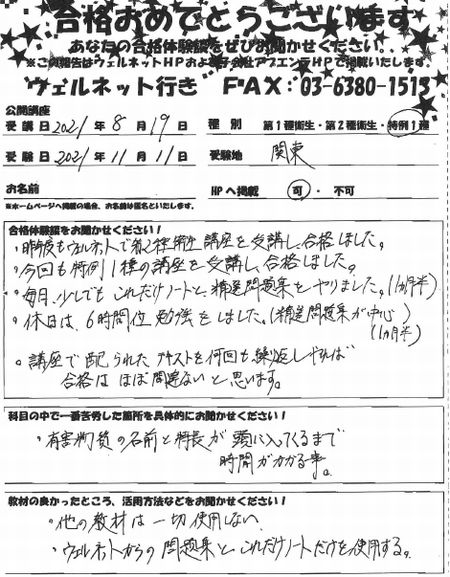 合格おめでとうございます
あなたの合格体験談をぜひお聞かせください。
※ご報告はウェルネットHPおよび子会社アプエンテHPで掲載いたします。
ウェルネット行き FAX:03-6380-1515
公開講座
受講日 2021 年 8 月 19 日 種別 第1種衛生・第2種衛生・特例1種
受験日 2021 年 11 月 11 日 受験地 関東
お名前 HPへ掲載 可・不可
※ホームページへ掲載の場合、お名前は匿名といたします。
合格体験談をお聞かせください!
・昨年度もウェルネットで第2種衛生講座を受講し、合格しました。
・今回も特例1種の講座を受講し、合格しました。
・毎日、少しでもこれだけノートと、精選問題集をやりました。(1ヵ月半)
・休日は、6時間位勉強をしました。(精選問題集が中心)
(1ヵ月半)
・講座で配られたテキストを何回も繰返しやれば
合格はほぼ間違ないと思います。
科目の中で一番苦労した箇所を具体的にお聞かせください!
・有害物質の名前と特長が頭に入ってくるまで
時間がかかる事。
教材の良かったところ、活用方法などをお聞かせください!
・他の教材は一切使用しない
・ウェルネットからの問題集と、これだけノートだけを使用する。